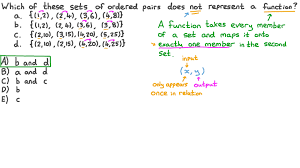 Which of these sets of ordered pairs does not represent a function?
a. {(1,2), (2,4), (3,6), (4,8)}
b. {(1,2), (2,4), (3,6), (3,8)}
c. {(2,10), (3,15), (4,20), (5,25)}
d. {(2,10), (2,15), (4,20), (4,25)}
A) b and d
B) a and d
C) b and c
D) b
E) c
A function takes every member
of a set and maps it onto
exactly one member in the second
set.
input
(x, y)
only appears output
once in relation